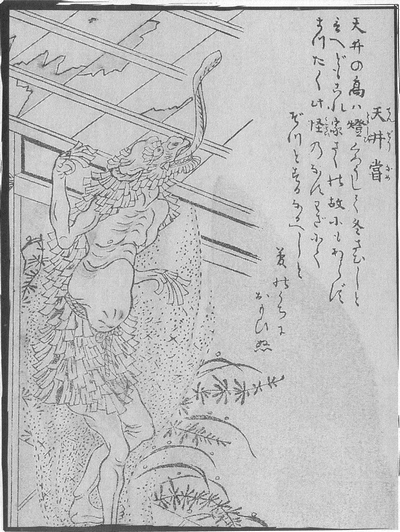 天井嘗
てんじやうなめ
天井の高ハ燈くらうして冬さむしと
言へどもこれ家さの故にもあらず
まつたく此怪のなすわざにて
ぞつとするなるべしと
夢のうちに
おもひぬ